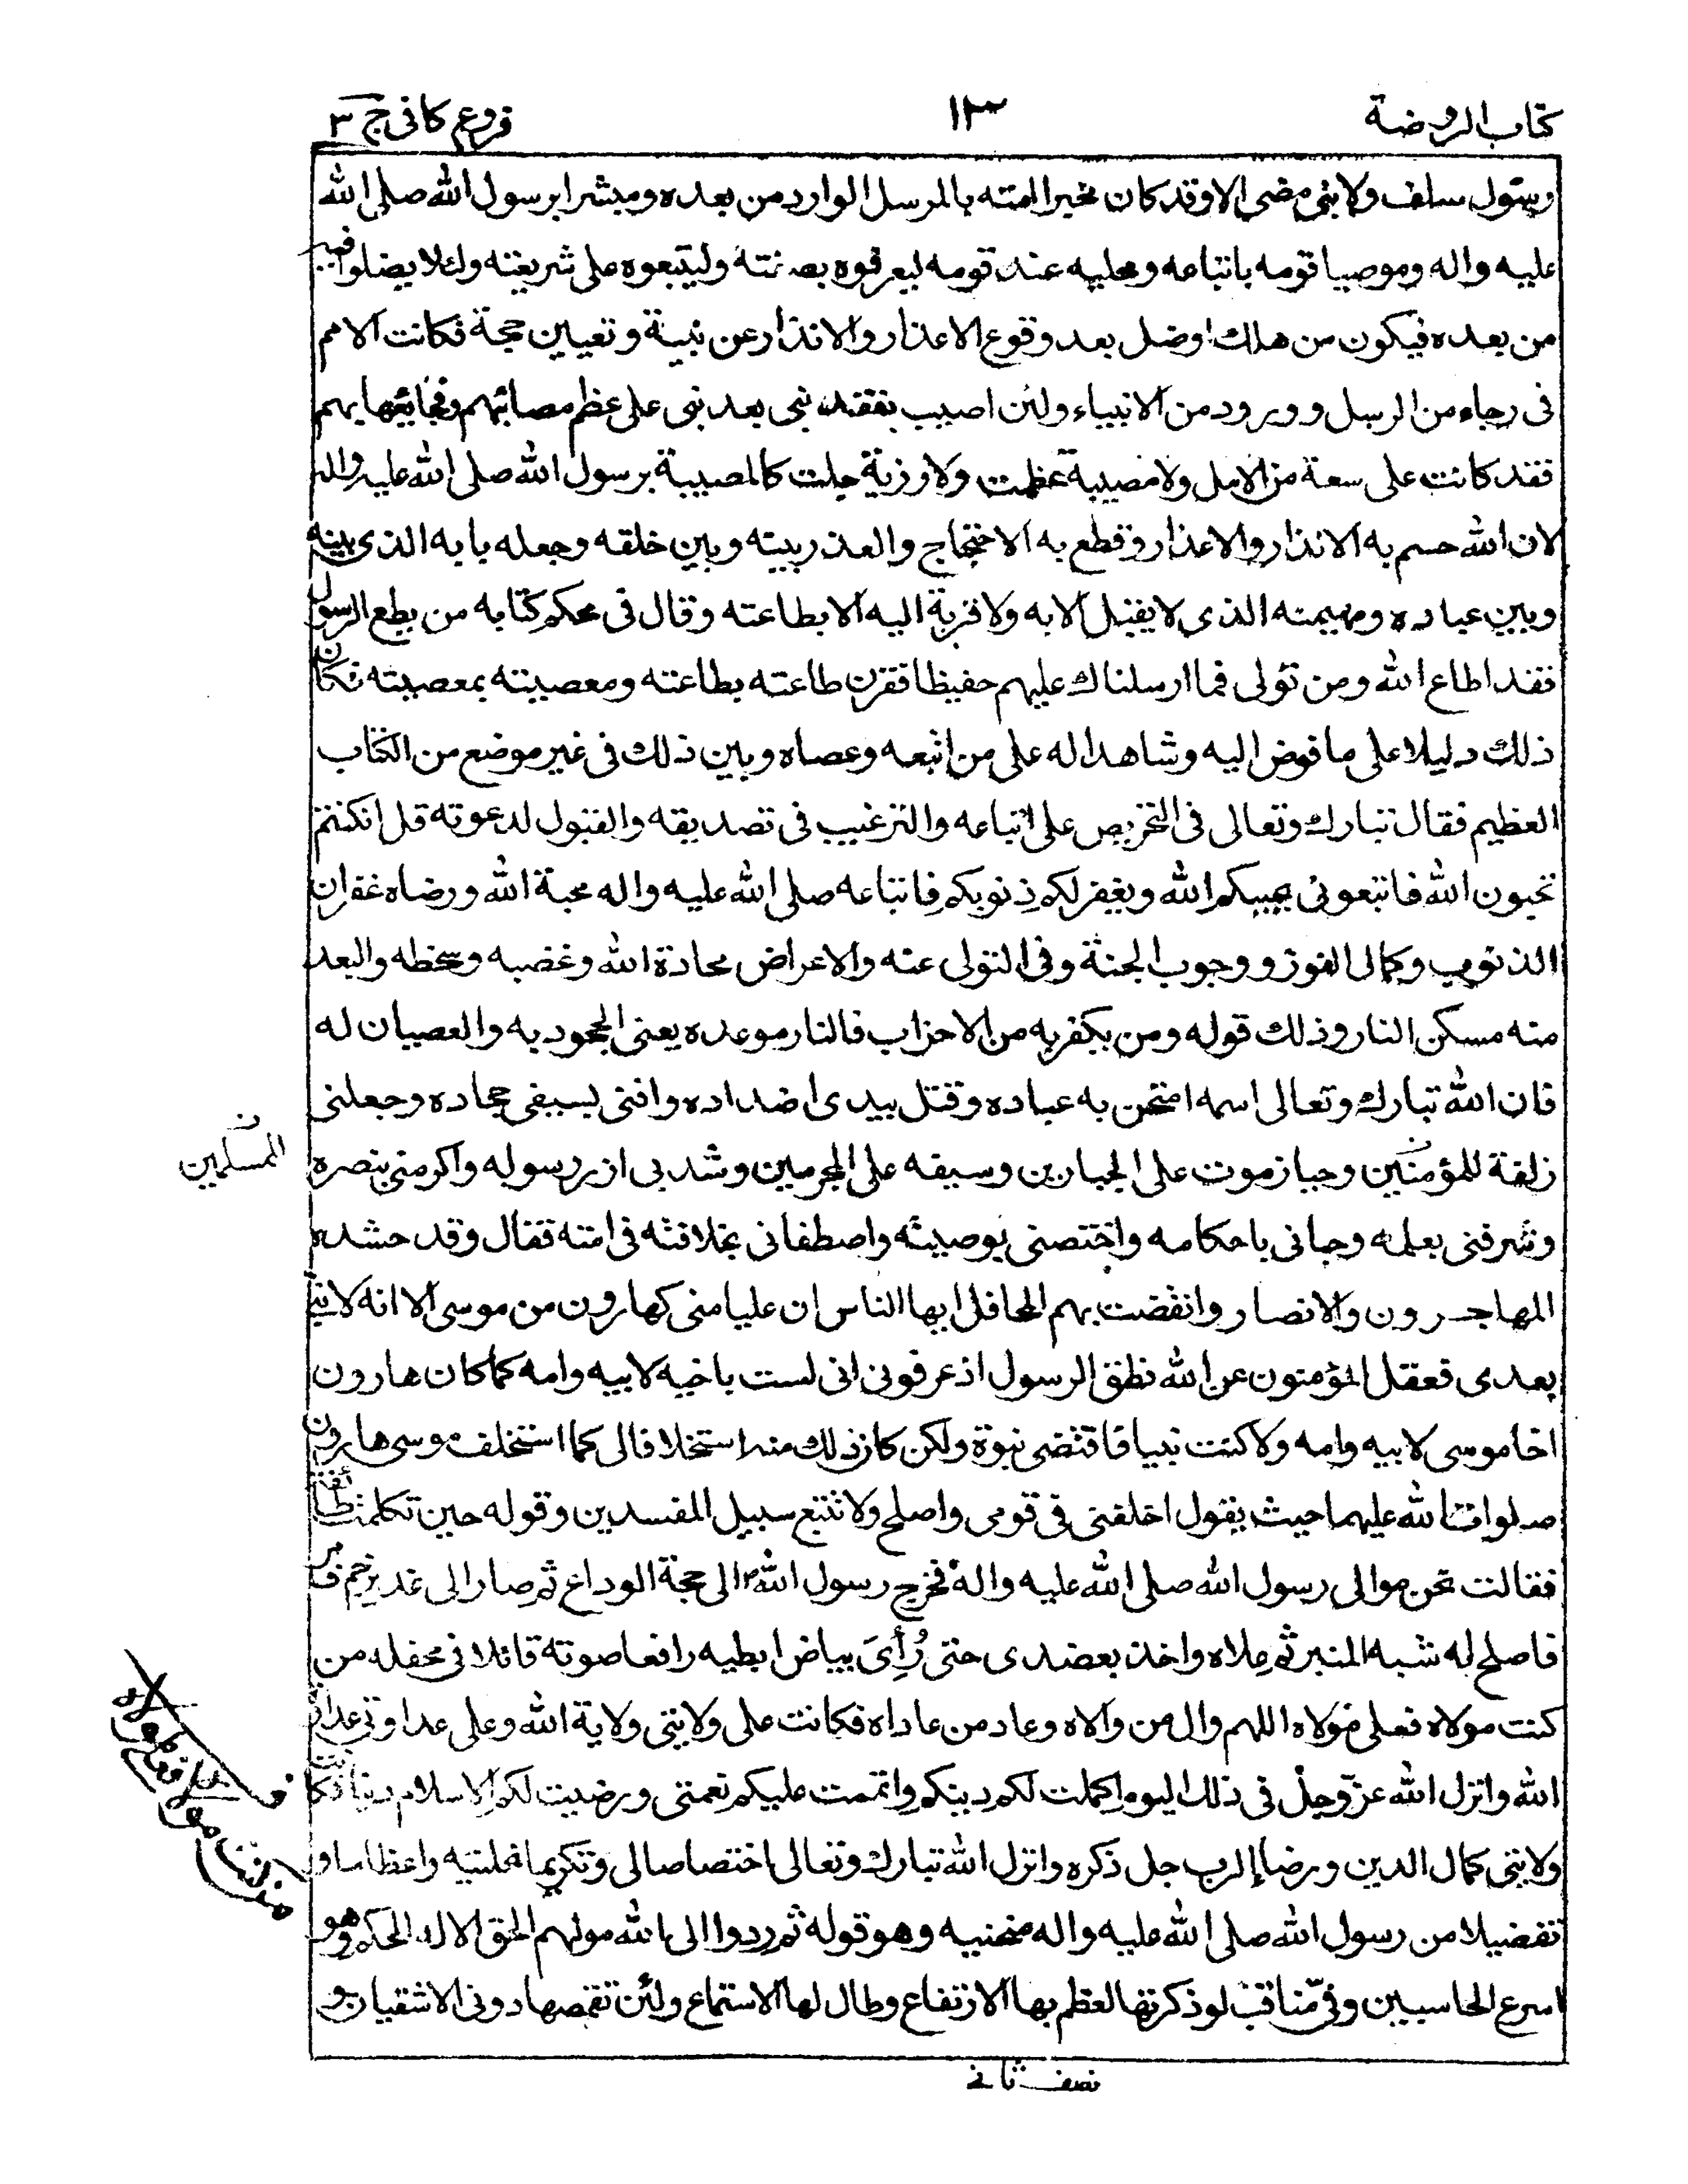 كتاب الروضة ١٣ فروع كافى ج ٣
رسول سلف ولا نبى مضى الا وقد كان مخبرا امته بالمرسل الوارد من بعده ومبشرا برسول الله صلى الله
عليه واله وموصيا قومه باتباعه ومحليه عند قومه ليعرفوه بصفته وليتبعوه على شريعته ولئلا يضلوا فيه
من بعده فيكون من هلك اوضل بعد وقوع الاعذار والانذار عن بينة وتعيين حجة فكانت الامم
فى رجاء من الرسل وورود من الانبياء ولئن اصيب بفقد نبى بعد نبى على عظم مصائبهم وفجائعها بهم
فقد كانت على سعة من الامل ولا مصيبة عظمت ولا رزية جلت كالمصيبة برسول الله صلى الله عليه واله
لان الله حسم به الانذار والاعذار وقطع به الاحتجاج والعذر بينه وبين خلقه وجعله بابه الذى بينه
وبين عباده ومهيمنه الذى لا يقبل الا به ولا قربة اليه الا بطاعته وقال فى محكم كتابه من يطع الرسول
فقد اطاع الله ومن تولى فما ارسلناك عليهم حفيظا فقرن طاعته بطاعته ومعصيته بمعصيته فكان
ذلك دليلا على ما فوض اليه وشاهدا له على من اتبعه وعصاه وبين ذلك فى غير موضع من الكتاب
العظيم فقال تبارك وتعالى فى التحريص على اتباعه والترغيب فى تصديقه والقبول لدعوته قل ان كنتم
تحبون الله فاتبعونى يحببكم الله ويغفر لكم ذنوبكم فاتباعه صلى الله عليه واله محبة الله ورضاه غفران
الذنوب وكمال الفوز ووجوب الجنة وفى التولى عنه والاعراض محادة الله وغضبه وسخطه والبعد
منه مسكن النار وذلك قوله ومن يكفر به من الاحزاب فالنار موعده يعنى الجحود به والعصيان له
فان الله تبارك وتعالى اسمه امتحن به عباده وقتل بيدى اضداده وافنى بسيفى جحاده وجعلنى
زلفة للمؤمنين وحياز موت على الجبارين وسيفه على المجرمين وشد بى ازر رسوله واكرمنى بنصره
المسلمين ن
وشرفنى بعلمه وحبانى باحكامه واختصنى بوصيته واصطفانى بخلافته فى امته فقال وقد حشده
المهاجرون والانصار وانقضت بهم المحافل ايها الناس ان عليا منى كهارون من موسى الا انه لا نبى
بعدى فعقل المؤمنون عن الله نطق الرسول اذ عرفونى انى لست باخيه لابيه وامه كما كان هارون
اخا موسى لابيه وامه ولا كنت نبيا فاقتضى نبوة ولكن كان ذلك منه استخلافا لى كما استخلف موسى هارون
صلوات الله عليهما حيث يقول اخلفنى فى قومى واصلح ولا تتبع سبيل المفسدين وقوله حين تكلمت طائفة
فقالت نحن موالى رسول الله صلى الله عليه واله فخرج رسول الله ص الى حجة الوداع ثم صار الى غدير خم فامر
فاصلح له شبه المنبر ثم علاه واخذ بعضدى حتى رُأِىَ بياض ابطيه رافعا صوته قائلا فى محفله من
كنت مولاه فعلى مولاه اللهم وال من والاه وعاد من عاداه فكانت على ولايتى ولاية الله وعلى عداوتى عداوة
الله وانزل الله عزّ وجلّ فى ذلك اليوم اكملت لكم دينكم واتممت عليكم نعمتى ورضيت لكم الاسلام دينا فكانت
ولايتى كمال الدين ورضا الرب جل ذكره وانزل الله تبارك وتعالى اختصاصا لى وتكريما نحلنيه واعظاما و
تفضيلا من رسول الله صلى الله عليه واله منحنيه وهو قوله ثم ردوا الى الله موليهم الحق الا له الحكم وهو
اسرع الحاسبين وفىّ مناقب لو ذكرتها لعظم بها الارتفاع وطال لها الاستماع ولئن تقمصها دونى الاشقيان و
نصف ثانى